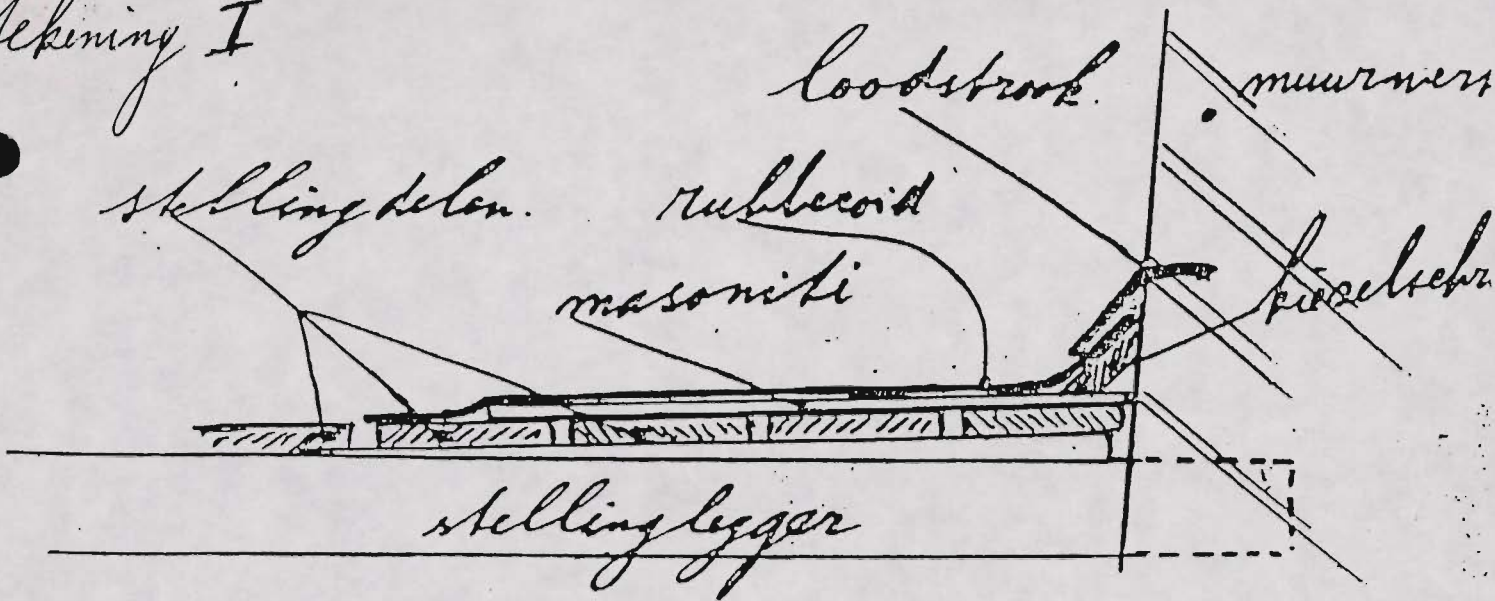 Tekening I
loodstrook.
muurwerk
stellingdelen.
rubberoid
masoniti
kiezelschr
stelling legger